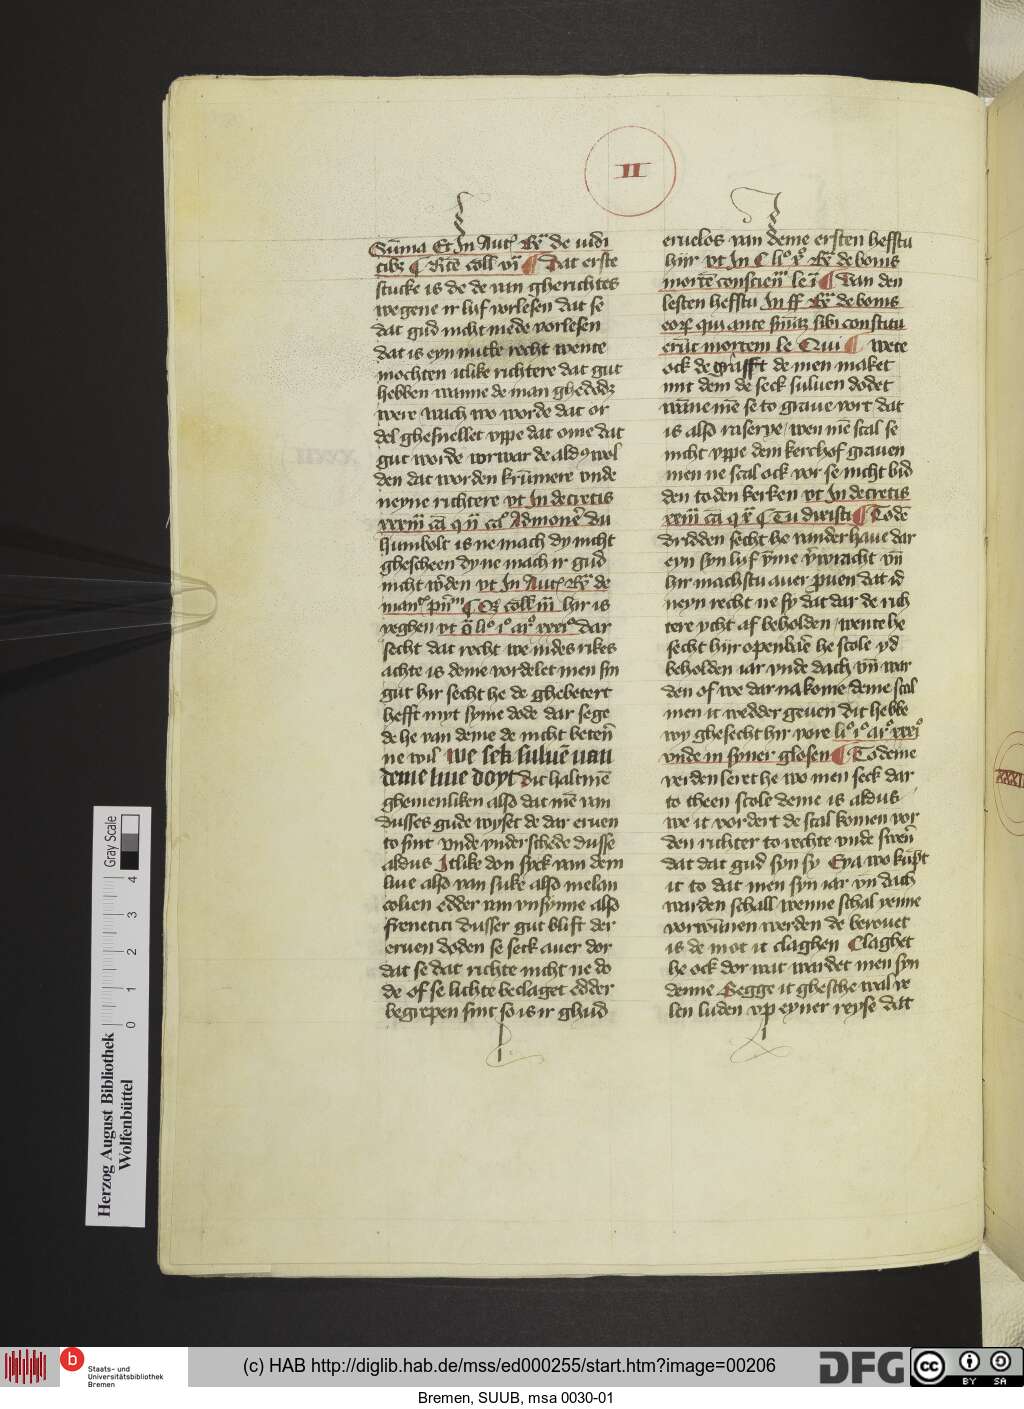 II
Su̅ma Et In Aut᷒ Rx̅ de iudi
cibꝫ ¶ Rc̅te coll vi̅ ¶ Dat erste
stucke is de de van gherichtes
wegene ir luf vorlesen dat se
dat gud nicht mede vorlesen
dat is eyn nutte recht wente
mochten itlike richtere dat gut
hebben wanne de man ghedodꝫ
were Nach wo worde dat or
del ghesnellet vppe dat ome dat
gut worde vorwar de aldꝯ wol
den dat worden kru̅mere vnde
neyne richtere vt In decretis
Admone̅ du
humbolt is ne mach dy nicht
ghescheen dy ne mach ir gud
nicht we̅den vt In Aut᷒ Rx̅ de
hir is
dar
secht dat recht we in des rikes
achte is deme vordelet men sin
gut hir secht he de ghebetert
hefft myt syme dode dar sege
de he van deme de nicht beten̅
ne wil We sek suluē van
deme liue doyt Dit haltme̅
ghemenliken also dat me̅ van
dusses gude wyset de dar eruen
to sint vnde vnderschede dusse
aldus Itlike don syck van dem
liue also van suke also melan
colien edder van vnsynne also
frenetici dusser gut blift der
eruen doden se seck auer dor
dat se dat richte nicht ne do
de of se lichte beclaget edder
begrepen sint so is ir ghud
eruelos van deme ersten hefftu
hijr vt In C li° x° Rx̅ de bonis
le i̅ ¶ Van den
lesten hefftu In ff Rx̅ de bonis
eorꝝ qui ante sn̅iaꝫ sibi constitu
eru̅t mortem le Qui ¶ wete
ock de grafft de men maket
mit dem de seck suluen dodet
wa̅ne me̅ se to graue vort dat
is also raserye wen me̅ scal se
nicht vppe dem kerchof grauen
men ne scal ock vor se nicht bid
den to den kerken vt In decretis
¶ Tu dixisti ¶ Tode̅
dridden secht he van der haue dar
eyn syn luf y̅me v̅wracht vn̅
hir machstu auer pruen dat id
neyn recht ne sy dat dar de rich
tere ycht af beholden wente he
secht hijr openbare he scole yd
beholden iar vnde dach vn̅ war
den of we dar na kome deme scal
men it wedder geuen dit hebbe
wy ghesecht hir vore li° i° ar° xxxi°
vnde in syner glosen ¶ To deme
verden leret he wo men seck dar
to theen scole deme is aldus
we it vordert de scal komen vor
den richter to rechte vnde swen̅
dat dat gud syn sy Eya wo ku̅pt
it to dat men syn iar vn̅ dach
warden schall wenne schal yenne
vorwu̅nen werden de berouet
is de mot it claghen Claghet
he ock dor wat wardet men syn
denne Segge it ghesche wal ve
len luden vp eyner reyse dat
XXXI
Gray Scale
0 1 2 3 4
Herzog August Bibliothek
Wolfenbüttel
b
Staats- und
Universitätsbibliothek
Bremen
(c) HAB http://diglib.hab.de/mss/ed000255/start.htm?image=00206
DFG
cc BY SA
Bremen, SUUB, msa 0030-01